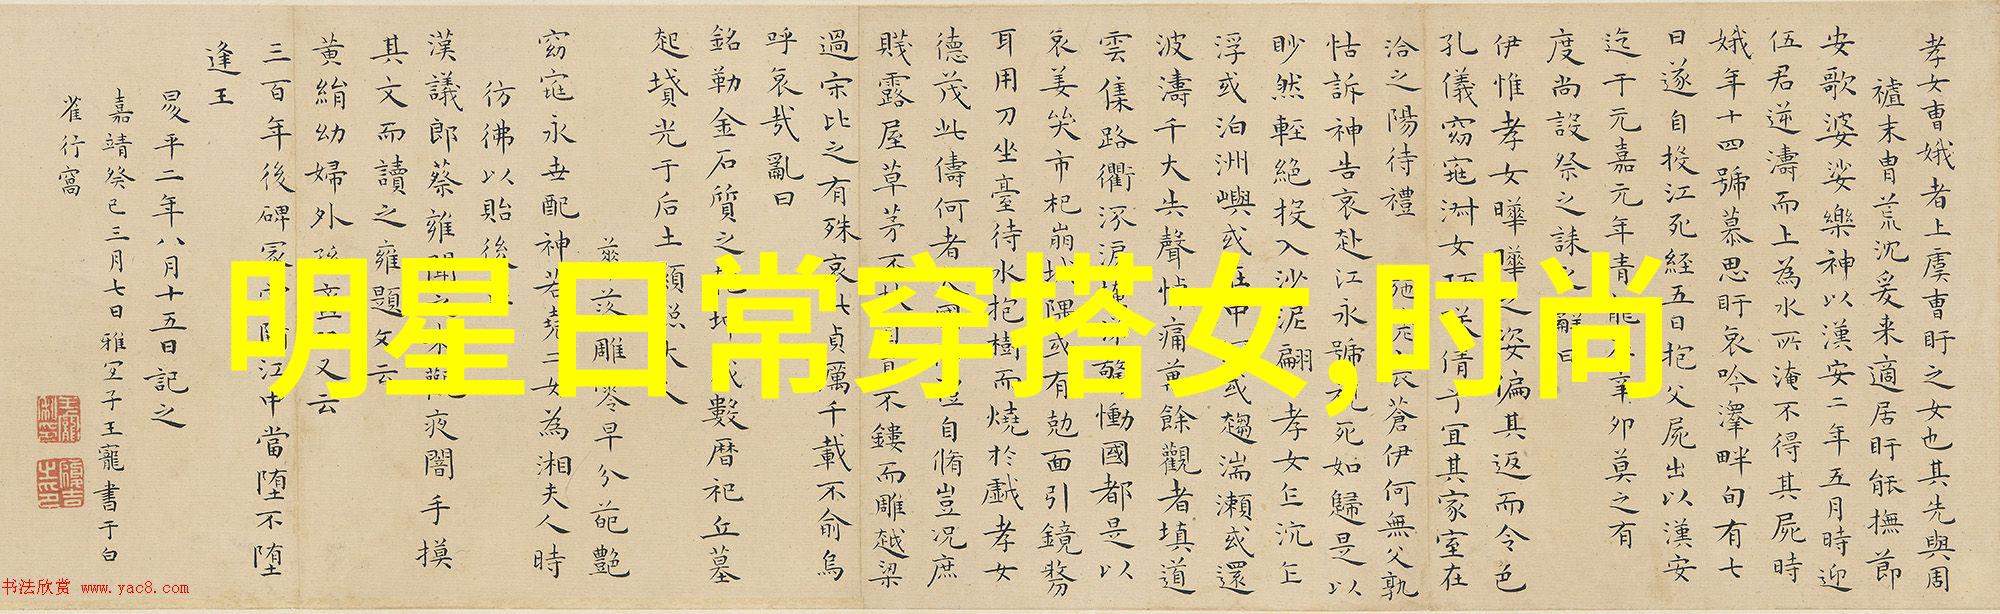 孝女曹娥者上虞曹盱之女也其先與周
禮末胄荒沈爰来適居盱能撫節
安歌婆娑樂神以漢安二年五月時迎
伍君逆濤而上為水所淹不得其屍時
娥年十四號慕思盱哀吟澤畔旬有七
日遂自投江死經五日抱父屍出以漢安
迄于元嘉元年青龍在辛卯莫之有
度尚設祭之誄之辭曰
伊惟孝女曄曄之姿偏其返而令色
孔儀窈窕淑女巧笑倩兮宜其家室在
洽之陽待禮蒼伊何無父孰
怙訴神告哀赴江永號視死如歸是以
眇然輕絕投入沙泥翩孝女乍沉乍
浮或泊洲嶼或在中或趨湍瀨或還
波濤千夫失聲悼痛萬餘觀者填道
雲集路衢流淚掩涕驚慟國都是以
哀姜哭市杞崩城隅或有勊面引鏡剺
耳用刀坐臺待水抱樹而燒於戲孝女
德茂此儔何者國禮自脩豈況庶
賤露屋草茅不扶自直不鏤而雕越梁
過宋比之有殊哀此貞厲千載不渝烏
呼哀哉亂曰
銘勒金石質之乾坤歲數曆祀丘墓
起墳光于后土顯照夫人
雕零早分葩艷
窈窕永世配神若堯二女為湘夫人時
彷彿以貽後
漢議郎蔡雍聞之来觀夜闇手摸
其文而讀之雍題文云
黃絹幼婦外孫虀臼又云
三百年後碑冢當墮江中當墮不墮
逢王
昇平二年八月十五日記之
嘉靖癸巳三月七日雅宜子王寵書于白
雀行窩
明星日常穿搭女,时尚
书法欣赏 www.yac8.com